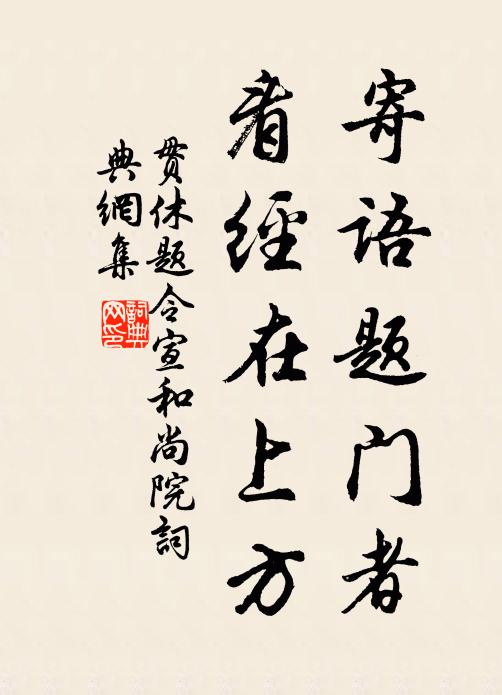 寄语题门者
看經在上方
贯休题令宣和尚院詞
典網集
詞典网印